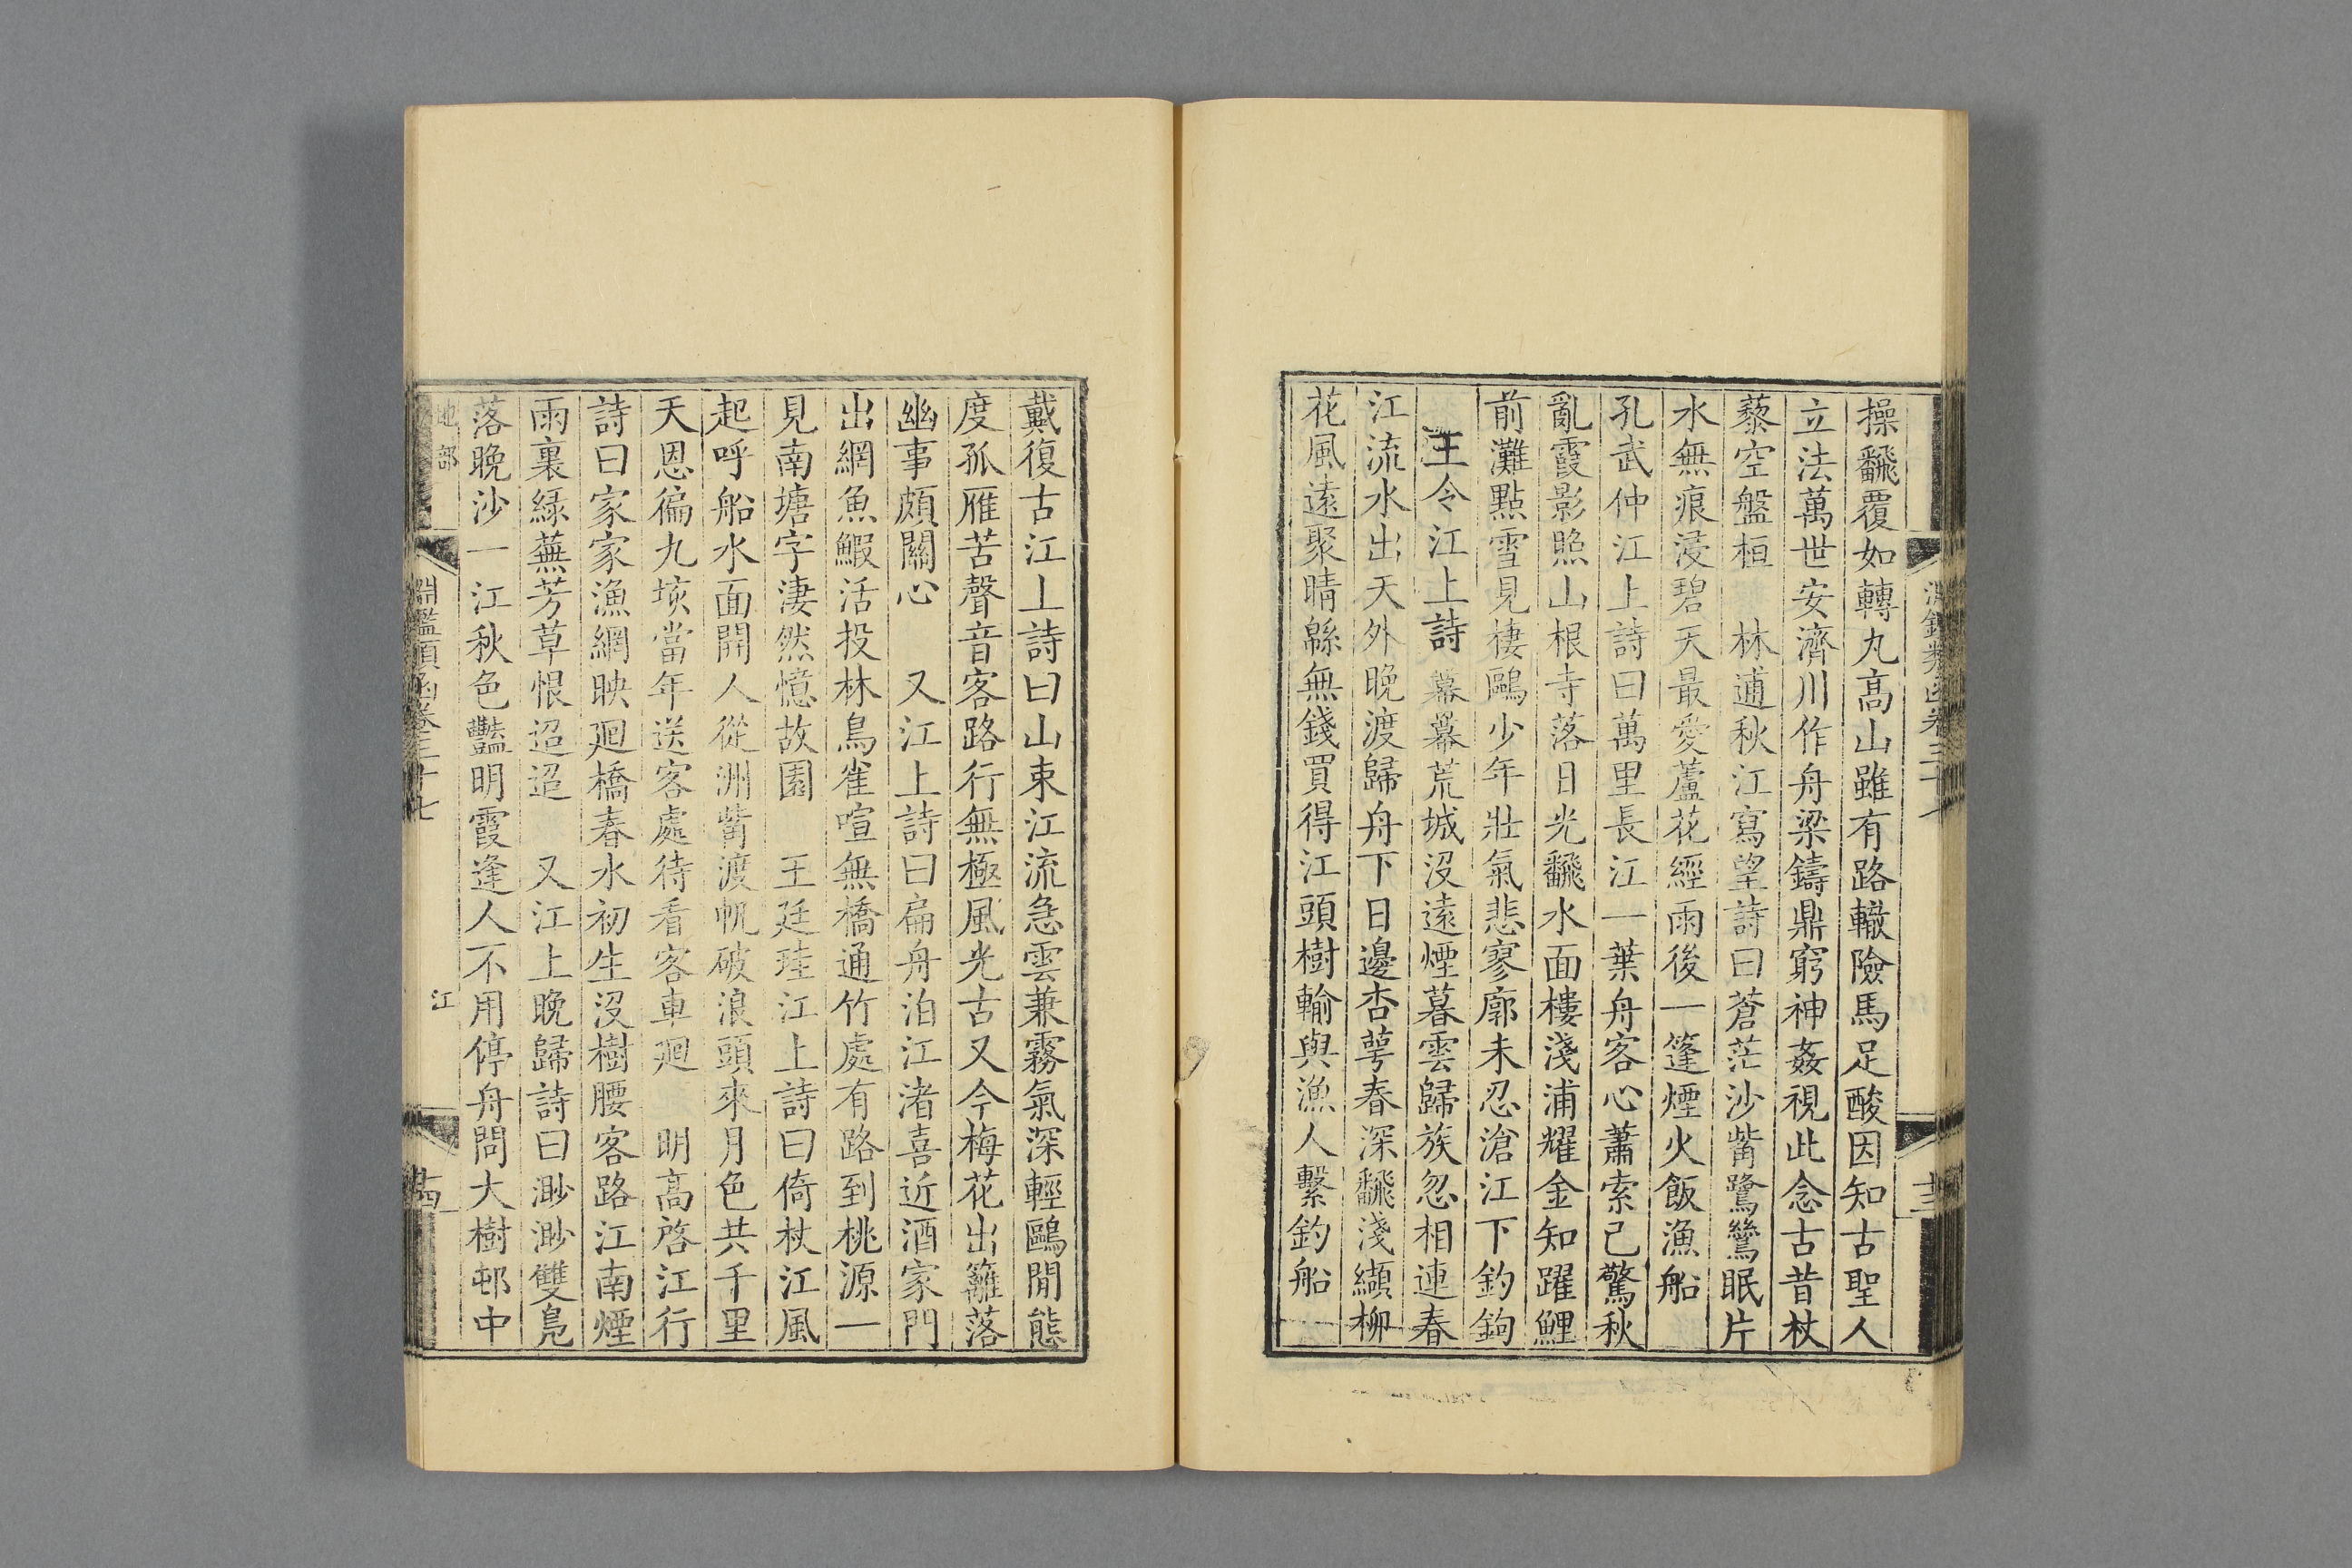 淵鑑類函卷三十七
操飜覆如轉丸高山雖有路轍險馬足酸因知古聖人
立法萬世安濟川作舟梁鑄鼎窮神姦視此念古昔杖
藜空盤桓 林逋秋江寫望詩曰蒼茫沙觜鷺鷥眠片
水無痕浸碧天最愛蘆花經雨後一篷煙火飯漁船
孔武仲江上詩曰萬里長江一葉舟客心蕭索已驚秋
亂霞影照山根寺落日光飜水面樓淺浦耀金知躍鯉
前灘點雪見棲鷗少年壯氣悲寥廓未忍滄江下釣鉤
王令江上詩 幕幕荒城沒遠煙暮雲歸族忽相連春
江流水出天外晚渡歸舟下日邊杏萼春深飜淺纈柳
花風遠聚晴緜無錢買得江頭樹輸與漁人繫釣船
戴復古江上詩曰山束江流急雲兼霧氣深輕鷗閒態
度孤雁苦聲音客路行無極風光古又今梅花出籬落
幽事頗關心 又江上詩曰扁舟泊江渚喜近酒家門
出網魚鰕活投林鳥雀喧無橋通竹處有路到桃源一
見南塘字淒然憶故園 王廷珪江上詩曰倚杖江風
起呼船水面開人從洲觜渡帆破浪頭來月色共千里
天恩徧九垓當年送客處待看客車廻 明高啓江行
詩曰家家漁網映廻橋春水初生沒樹腰客路江南煙
雨裏綠蕪芳草恨迢迢 又江上晚歸詩曰渺渺雙鳧
落晚沙一江秋色豔明霞逢人不用停舟問大樹邨中
地部
淵鑑類函卷三十七
江